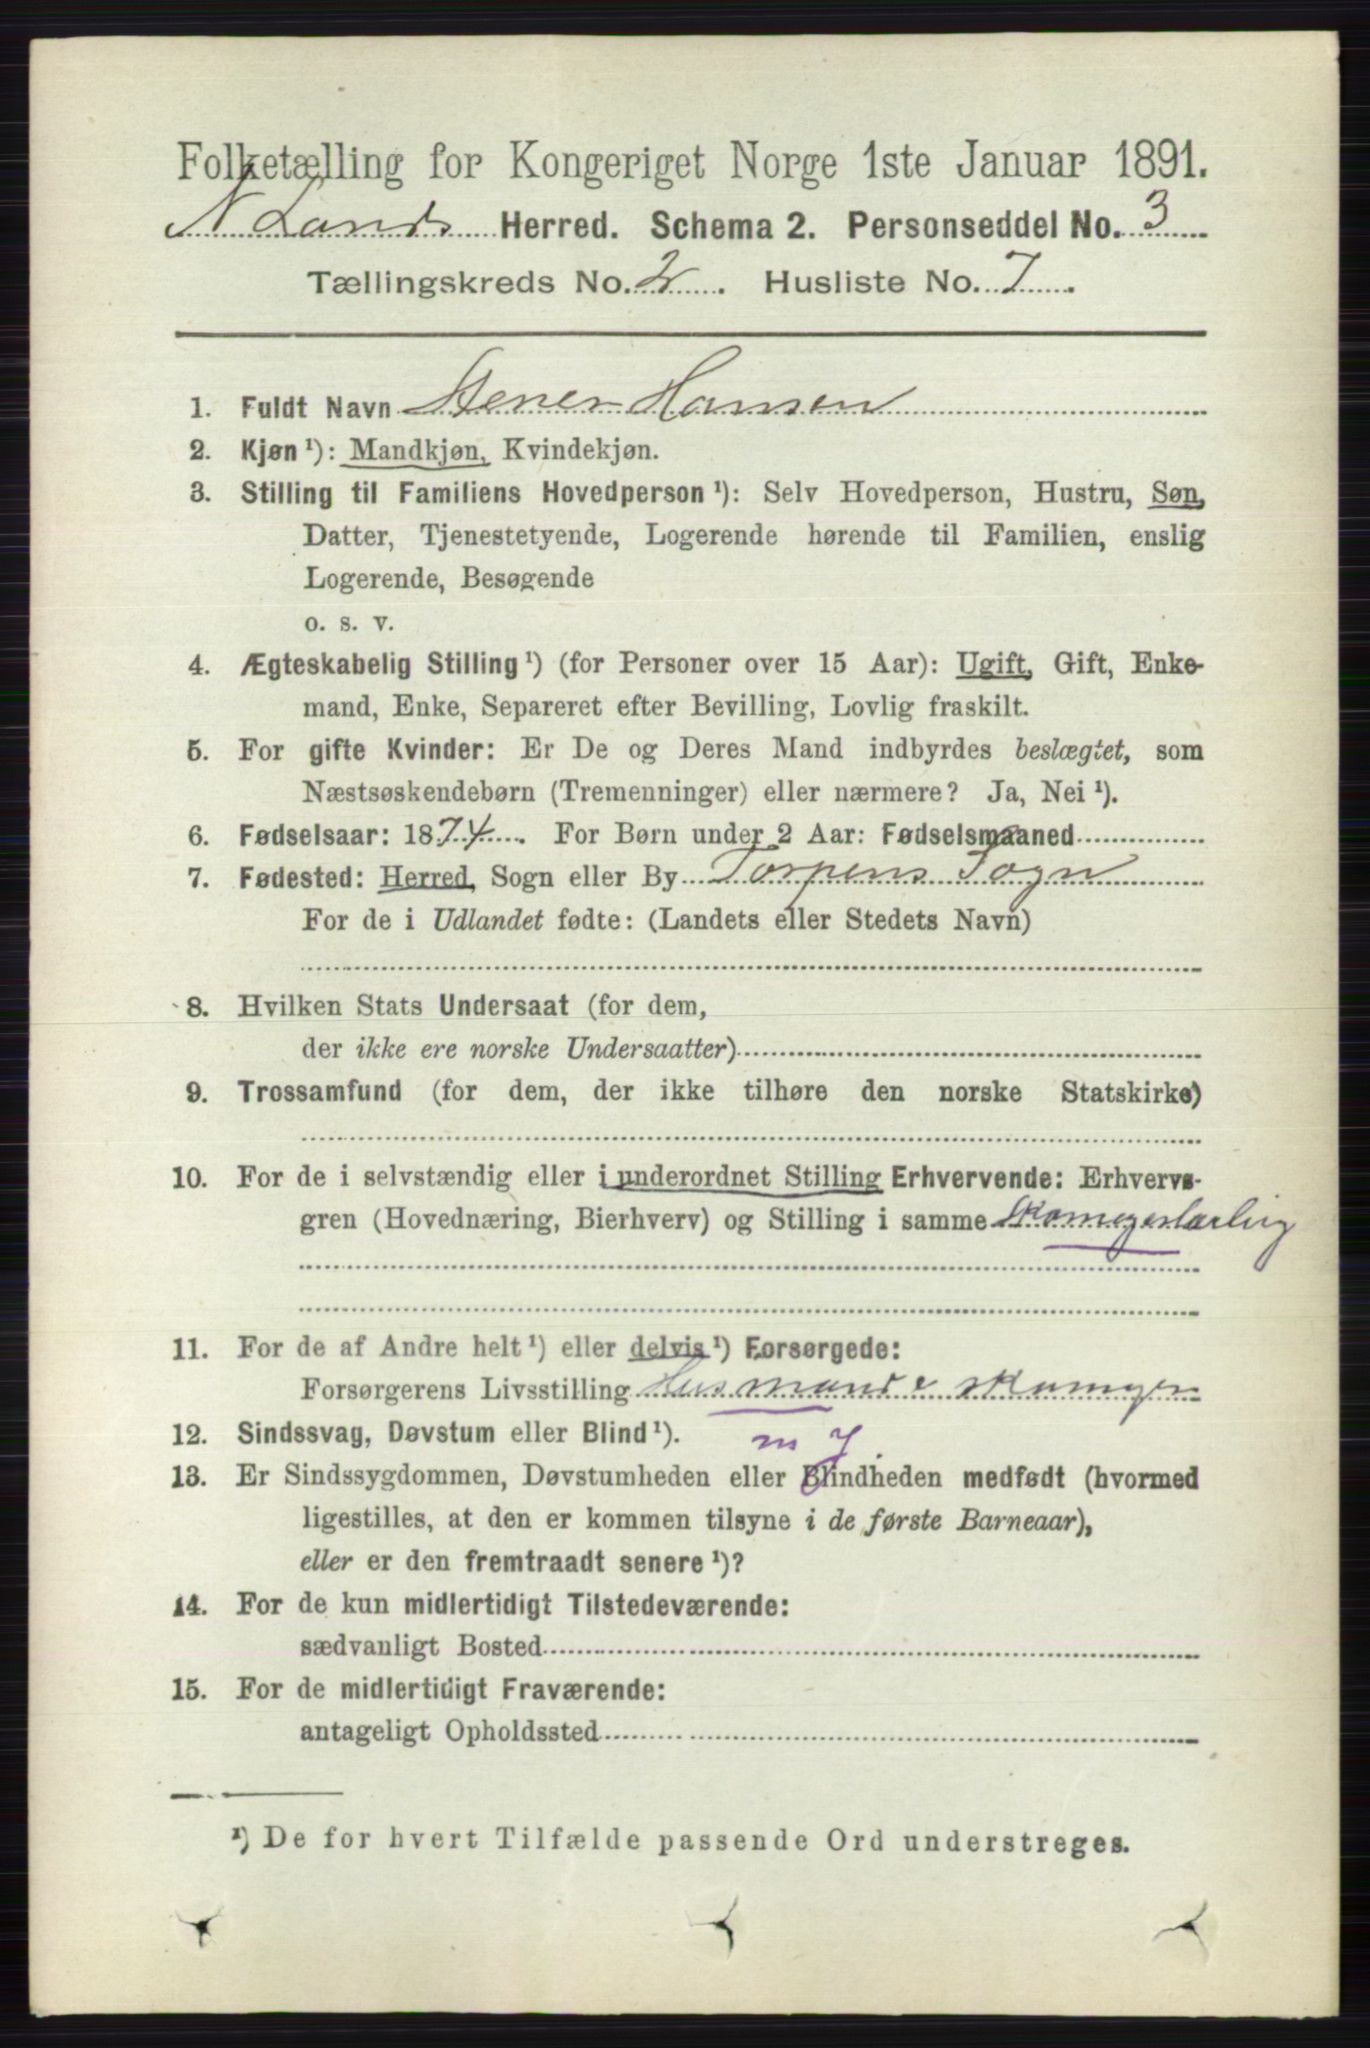 Folketælling for Kongeriget Norge 1ste Januar 1891.
N Lands Herred. Schema 2. Personseddel No. 3
Tællingskreds No. 2. Husliste No. 7.
1. Fuldt Navn Stener Hansen
2. Kjøn ¹): Mandkjøn, Kvindekjøn.
3. Stilling til Familiens Hovedperson ¹): Selv Hovedperson, Hustru, Søn,
Datter, Tjenestetyende, Logerende hørende til Familien, enslig
Logerende, Besøgende
o. s. v.
4. Ægteskabelig Stilling ¹) (for Personer over 15 Aar): Ugift, Gift, Enke-
mand, Enke, Separeret efter Bevilling, Lovlig fraskilt.
5. For gifte Kvinder: Er De og Deres Mand indbyrdes beslægtet, som
Næstsøskendebørn (Tremenninger) eller nærmere? Ja, Nei ¹).
6. Fødselsaar: 1874. For Børn under 2 Aar: Fødselsmaaned
7. Fødested: Herred, Sogn eller By Torpens Sogn
For de i Udlandet fødte: (Landets eller Stedets Navn)
8. Hvilken Stats Undersaat (for dem,
der ikke ere norske Undersaatter)
9. Trossamfund (for dem, der ikke tilhøre den norske Statskirke)
10. For de i selvstændig eller i underordnet Stilling Erhvervende: Erhvervs-
gren (Hovednæring, Bierhverv) og Stilling i samme Skomagerlærling
11. For de af Andre helt ¹) eller delvis ¹) Forsørgede:
Forsørgerens Livsstilling Husmand & skomager
12. Sindssvag, Døvstum eller Blind ¹). m
13. Er Sindssygdommen, Døvstumheden eller Blindheden medfødt (hvormed
ligestilles, at den er kommen tilsyne i de første Barneaar),
eller er den fremtraadt senere ¹)?
14. For de kun midlertidigt Tilstedeværende:
sædvanligt Bosted
15. For de midlertidigt Fraværende:
antageligt Opholdssted
¹) De for hvert Tilfælde passende Ord understreges.